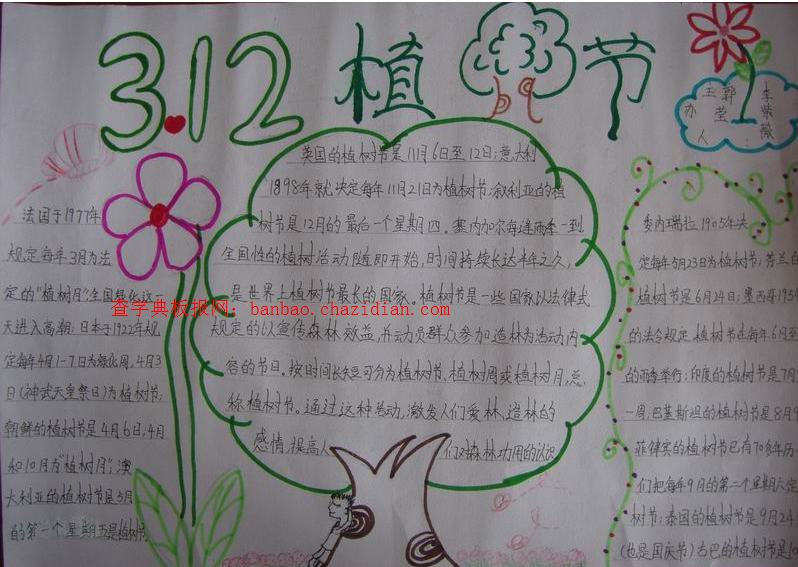 3.12植树节
主办人:
郭莹
李紫薇
法国于1977年
规定每年3月为法
定的"植树月"全国绿化这一
天进入高潮:日本于1922年规
定每年4月1-7日为绿化周,4月3
日(神武天皇祭日)为植树节;
朝鲜的植树节是4月6日;4月
和10月为"植树月";澳
大利亚的植树节是5月
的第一个星期五是植树节
英国的植树节是11月6日至12日;意大利
1898年就决定每年11月21日为植树节;叙利亚的植
树节是12月的最后一个星期四。塞内加尔每逢雨季一到
全国性的植树活动随即开始,时间持续长达半年之久,
是世界上植树节最长的国家。植树节是一些国家以法律式
规定的以宣传森林效益,并动员群众参加造林为活动内
容的节日。按时间长短可分为植树节、植树周或植树月,总
称植树节。通过这种活动,激发人们爱林、造林的
感情,提高人们对森林功用的认识
委内瑞拉1905年决
定每年5月23日为植树节;芬兰的
植树节是6月24日;墨西哥195
的法令规定植树节在每年6月至
的雨季举行;印度的植树节是7月
一周;巴基斯坦的植树节是8月9
菲律宾的植树节已有70多年历
们把每年9月的第二个星期六定
树节;泰国的植树节是9月24
(也是国庆节)古巴的植树节是10
查字典板报网:banbao.chazidian.com